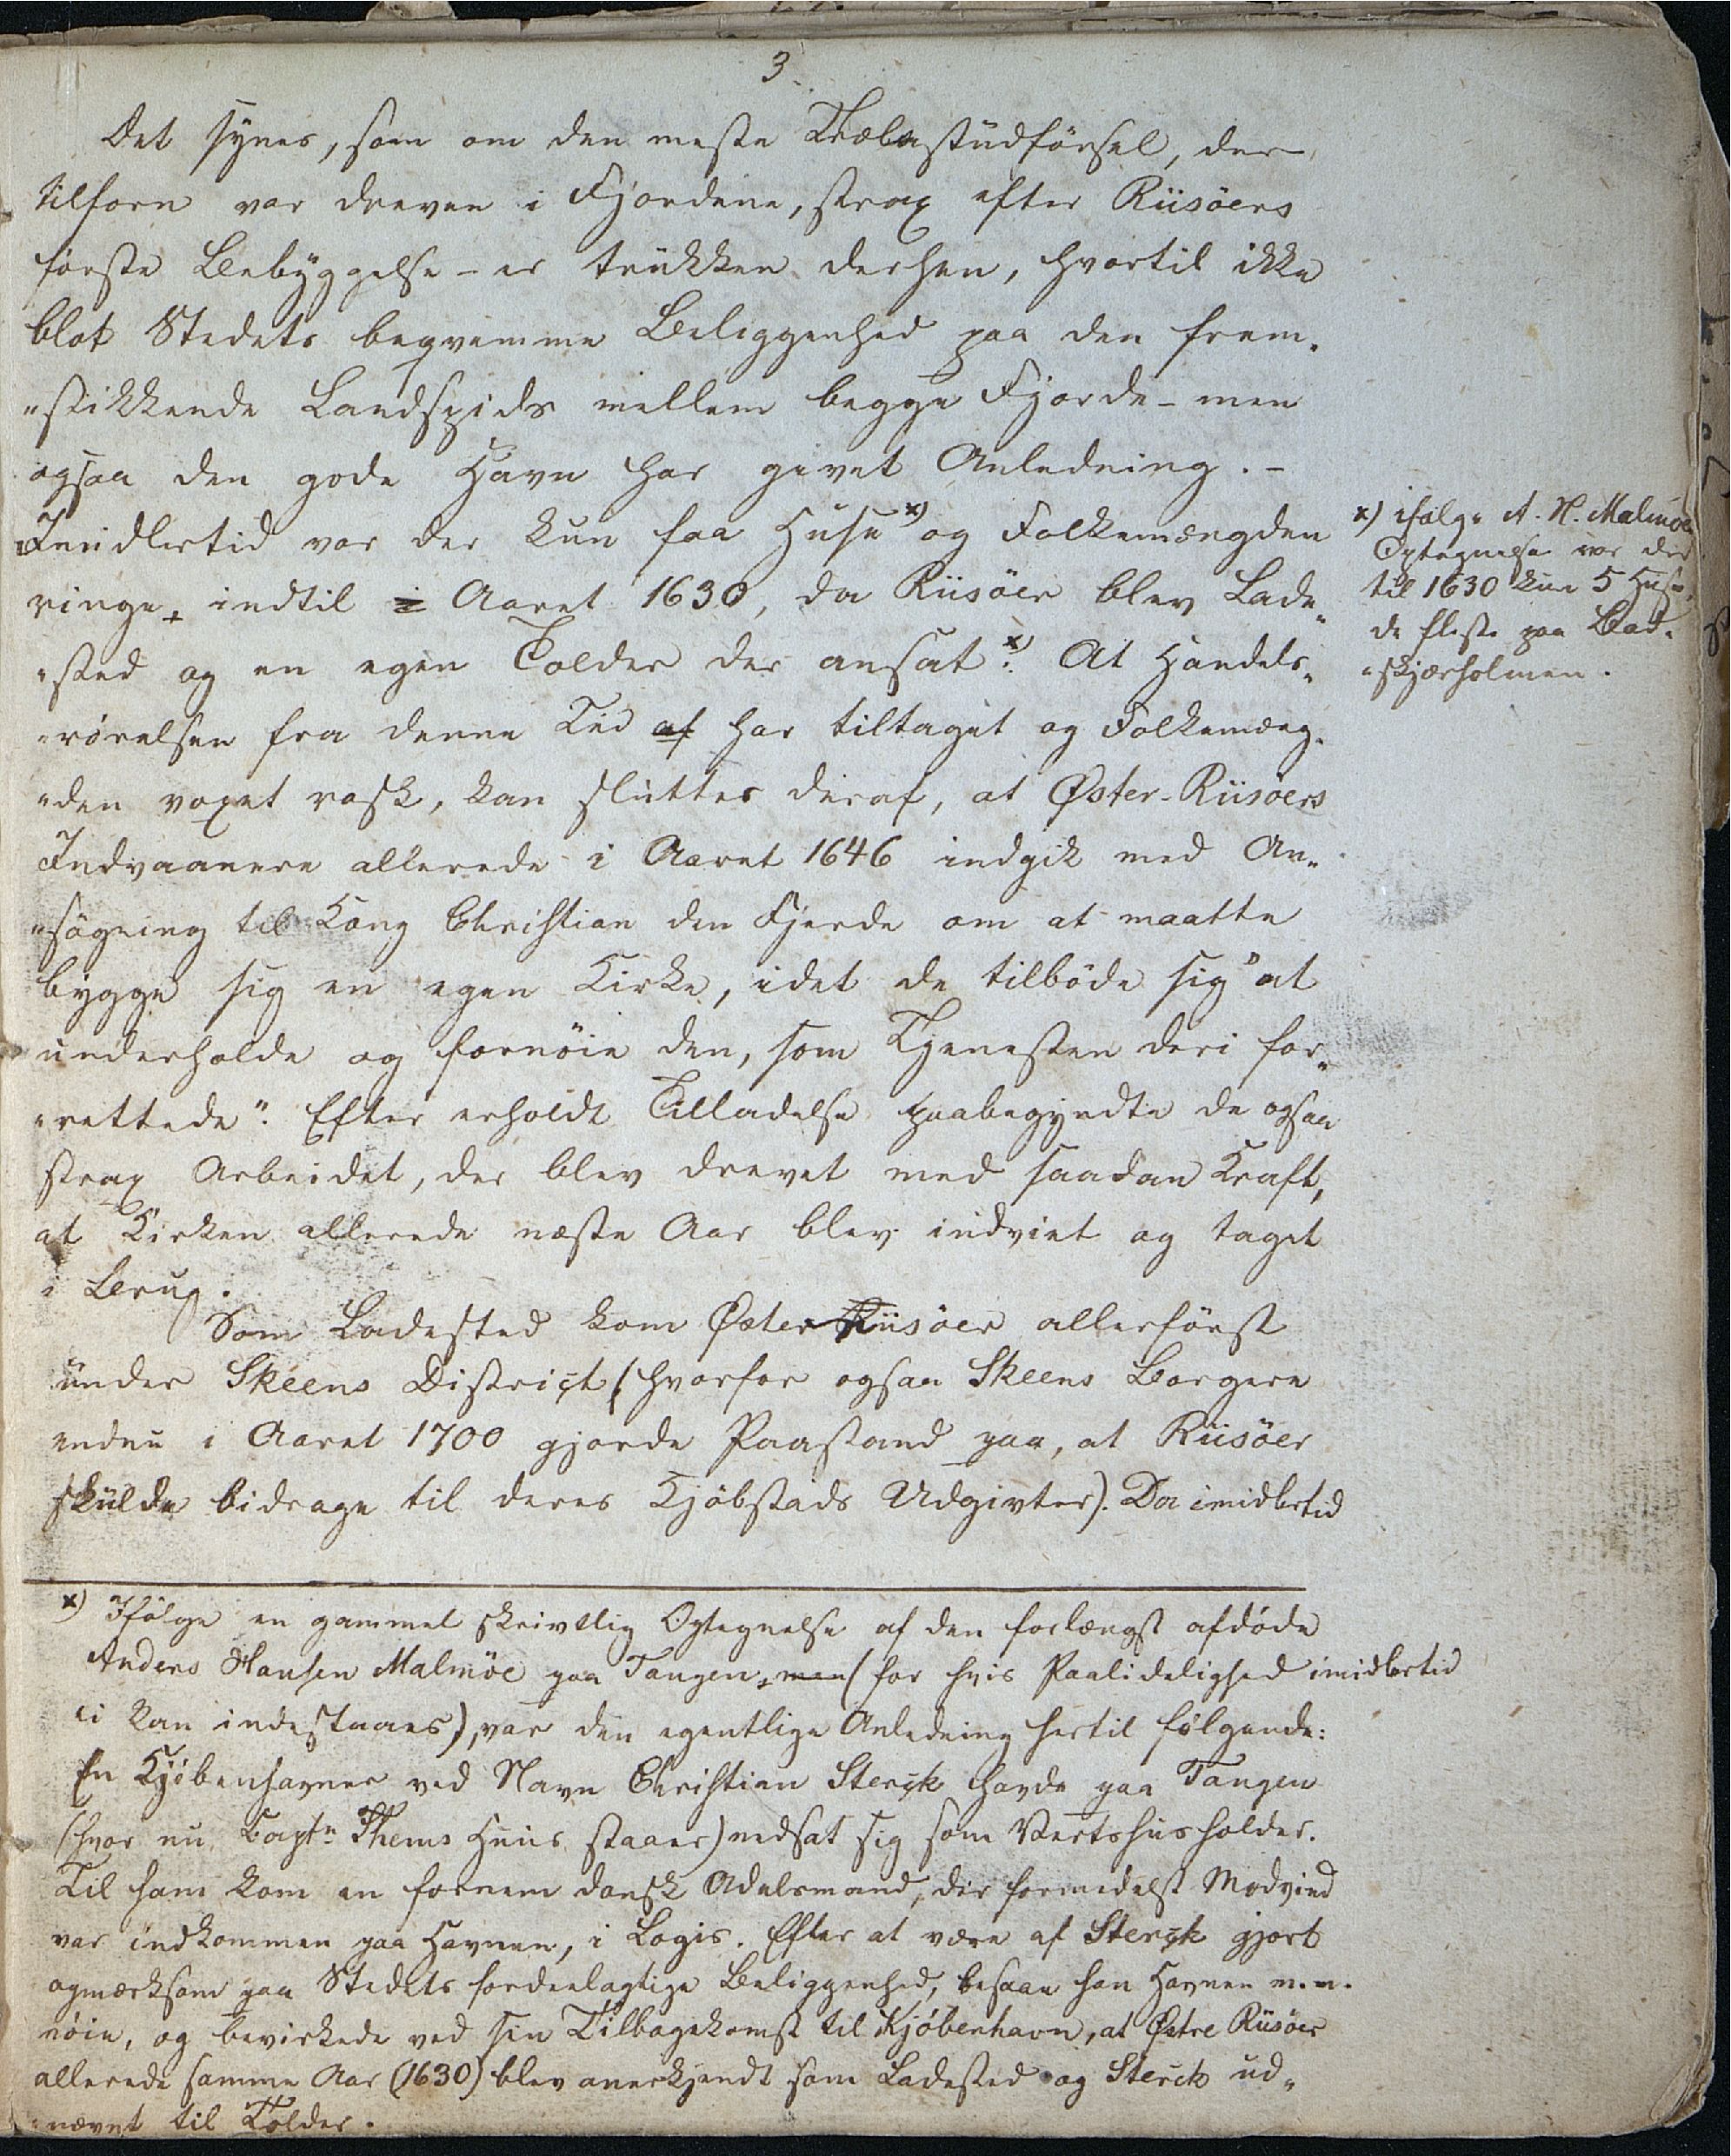 3.
Det synes, som om den meste Trælastudförsel, der
tilforn var dreven i Fjordene, strax efter Riisöers
förste Bebyggelse - er trukken derhen, hvortil ikke
blot Stedets beqvemme Beliggenhed paa den frem-
"stikkende Landspids mellem begge Fjorde - men
ogsaa den gode Havn har givet Anledning. -
Imidlertid var der kun faa Huse x) og Folkemængden
ringe, indtil i Aaret 1630, da Riisöer blev Lade-
"sted og en egen Tolder der ansat x). At Handels-
"rörelsen fra denne Tid af har tiltaget og Folkemæng-
"den voxet rask, kan sluttes deraf, at Øster-Riisöers
Indvaanere allerede i Aaret 1646 indgik med An-
"sögning til Kong Christian den Fjerde om at maatte
bygge sig en egen Kirke, idet de tilböde sig "at
underholde og fornöie den, som Tjenesten deri for-
"rettede". Efter erholdt Tilladelse paabegyndte de ogsaa
strax Arbeidet, der blev drevet med saadan Kraft,
at Kirken allerede næste Aar blev indviet og taget
i Brug.
Som Ladested kom Øster Riisöer allerförst
under Skeens District (hvorfor ogsaa Skeens Borgere
endnu i Aaret 1700 gjorde Paastand paa, at Riisöer
skulde bidrage til deres Kjöbstads Udgivter). Da imidlertid
x) ifölge A. H. Malmöes
Optegnelse var der
til 1630 kun 5 Huse,
de fleste paa Bad-
"skjærholmen.
x) Ifölge en gammel skrivtlig Optegnelse af den forlængst afdöde
Anders Hansen Malmöe paa Tangen, men (for hvis Paalidelighed imidlertid
ei kan indestaaes), var den egentlige Anledning hertil fölgende:
En Kjöbenhavner ved Navn Christian Sterck havde paa Tangen
(hvor nu Captn Thems Huus staaer) nedsat sig som Vertshusholder.
Til ham kom en fornem dansk Adelsmand, der formedelst Modvind
var indkommen paa Havnen, i Logis. Efter at være af Sterck gjort
opmærksom paa Stedets fordeelagtige Beliggenhed, besaae han Havnen m.m.
nöie, og bevirkede ved sin Tilbagekomst til Kjöbenhavn, at Østre Riisöer
allerede samme Aar (1630) blev anerkjendt som Ladested og Sterck ud-
"nævnt til Tolder.